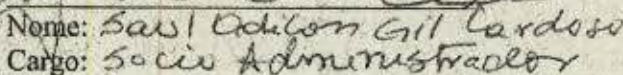 Nome: Saul Odilon Gil Cardoso
Cargo: Socio Administrador